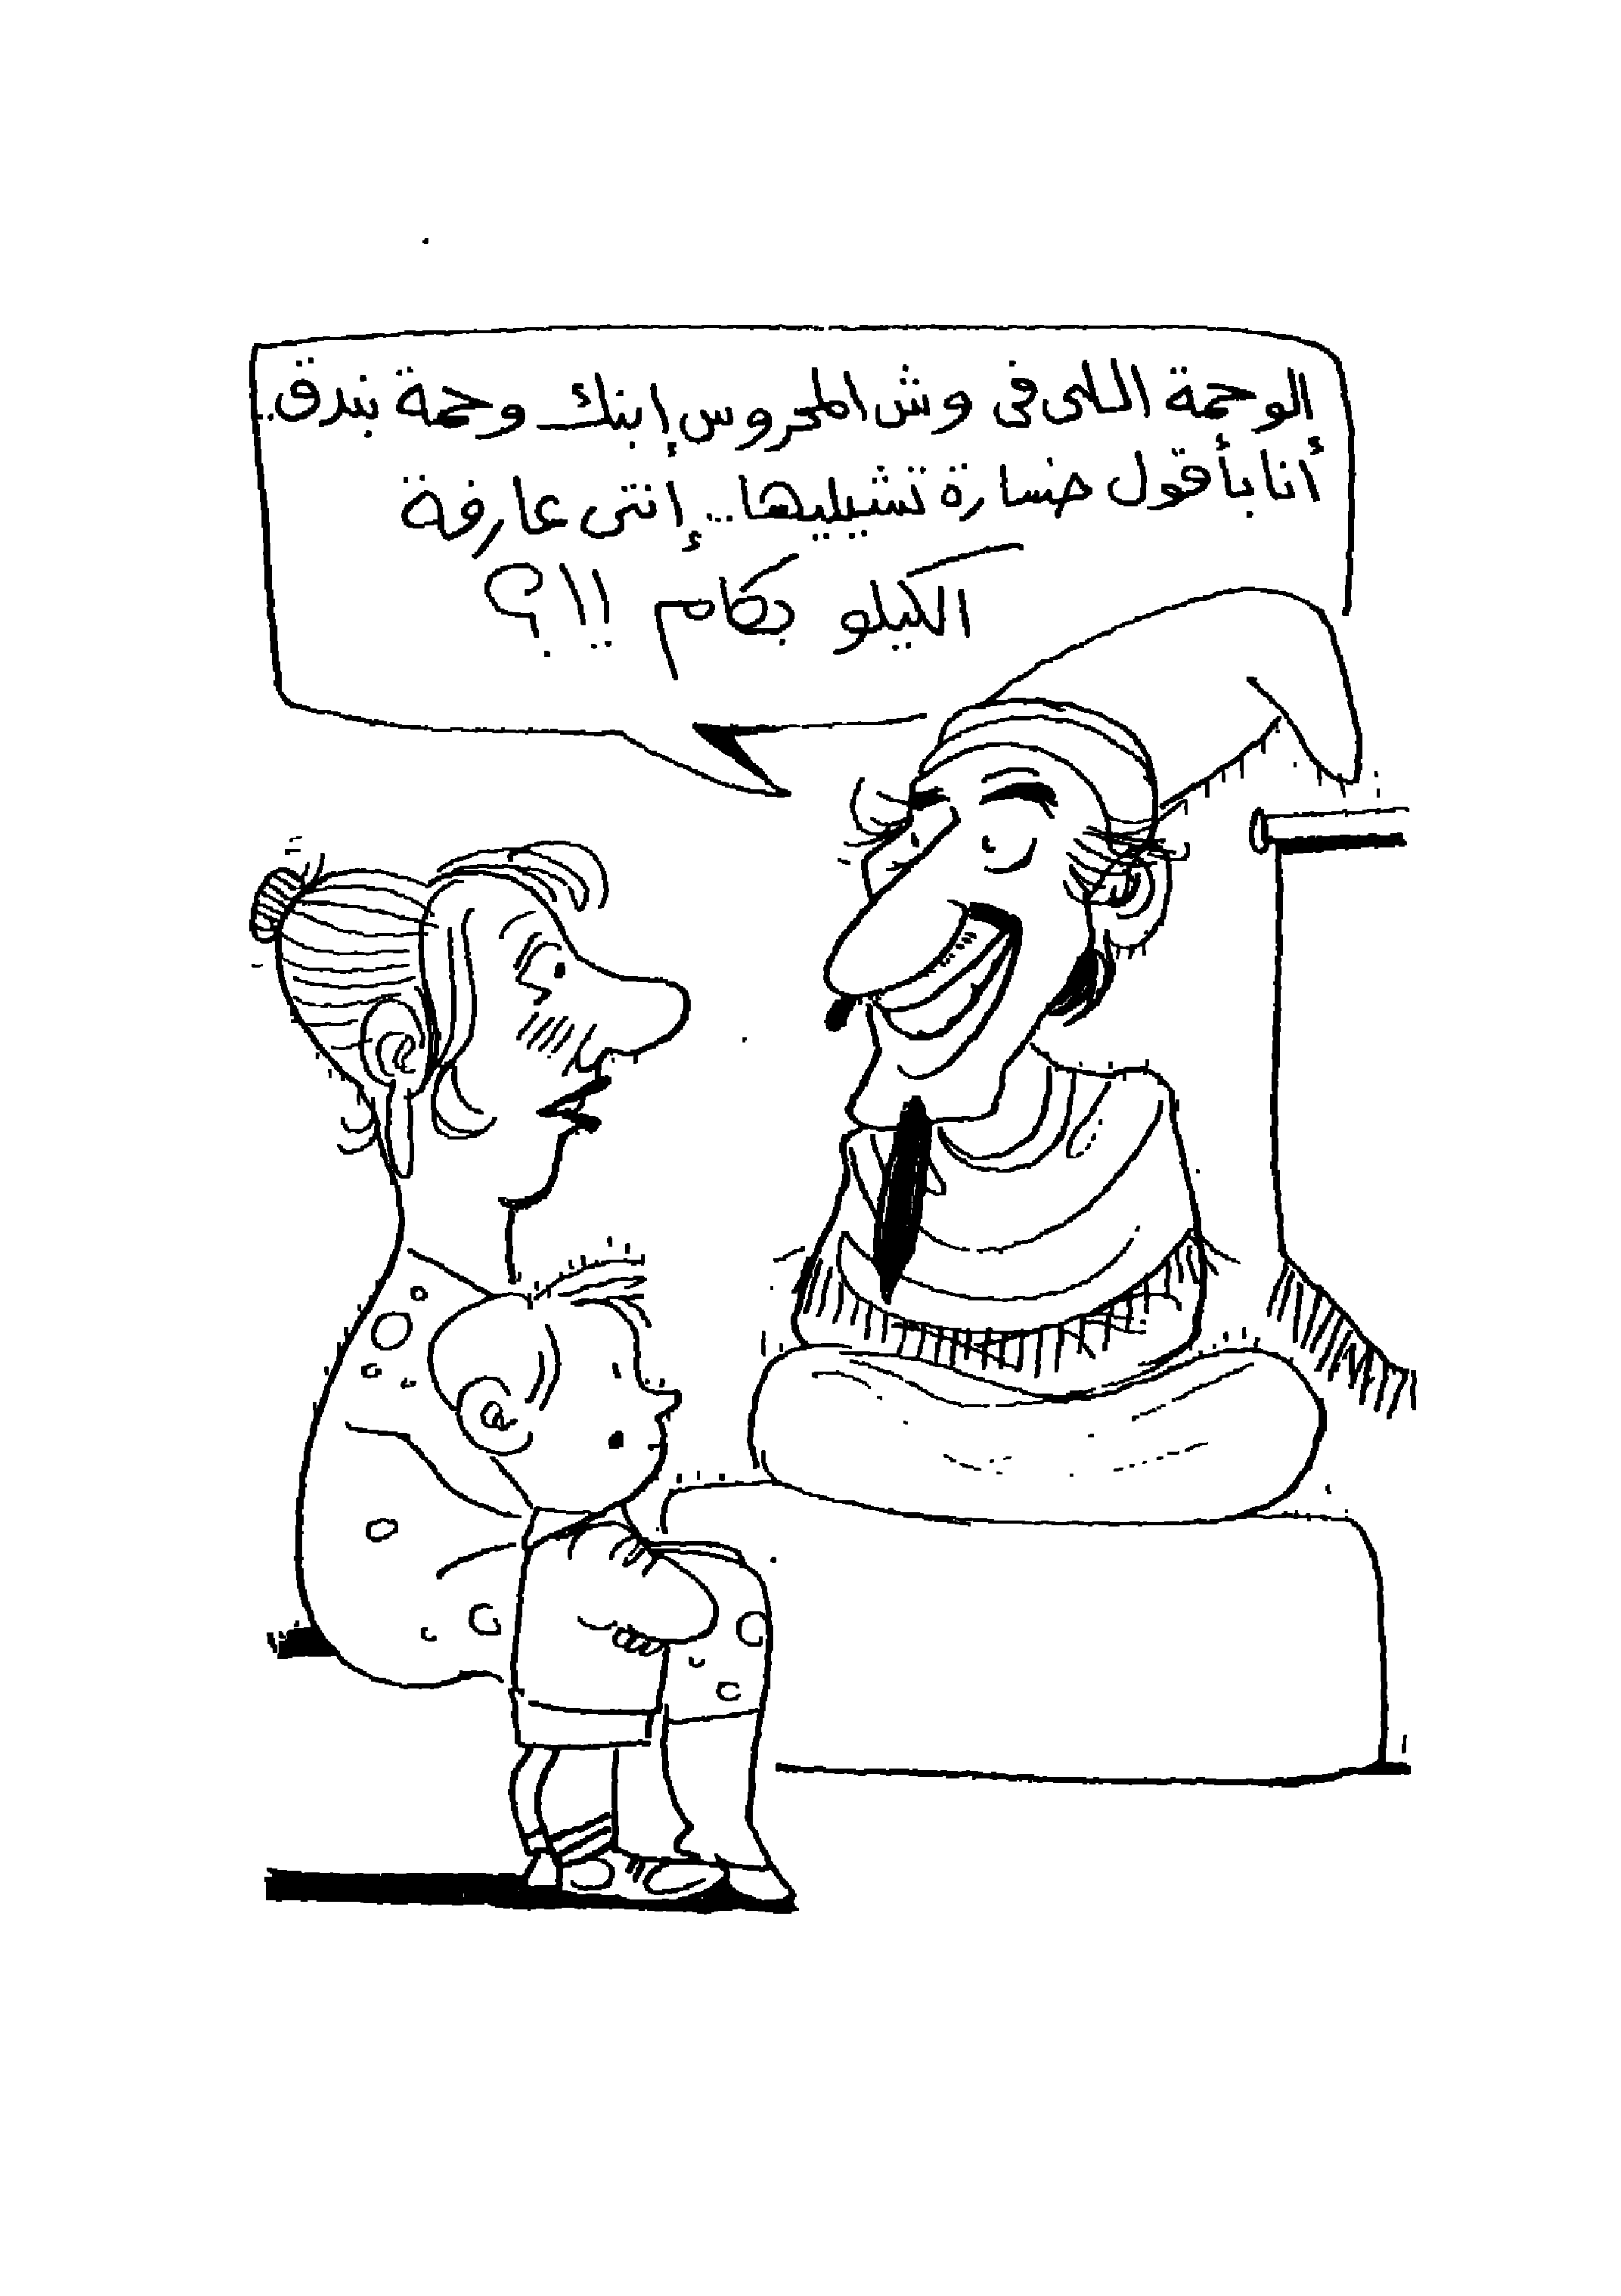 الوحمة اللى فى وش المحروس إبنك وحمة بندق..
أنا بأقول خسارة تشيليها... إنتى عارفة
الكيلو بكام !!؟